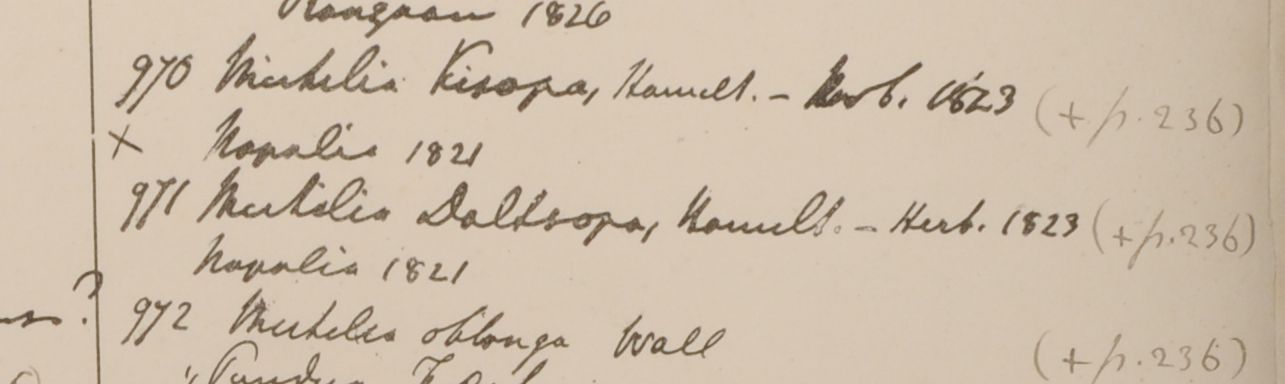 Rangoon 1826
970 Michelia Kisopa, Hamilt. - Herb. 1823 (+ p. 236)
x Napalia 1821
971 Michelia Doltsopa, Hamilt. - Herb. 1823 (+ p. 236)
Napalia 1821
ms?
972 Michelia oblonga Wall (+ p. 236)